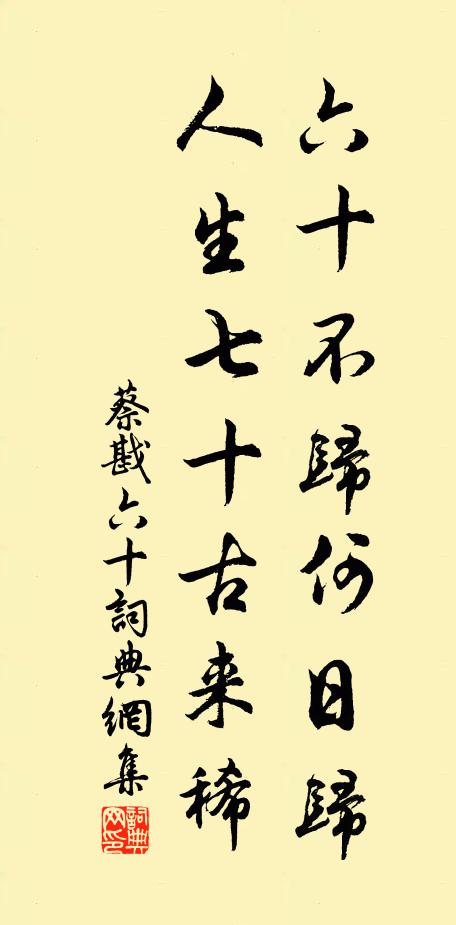 六十不歸何日歸
人生七十古来稀
蔡戡六十詞典網集
詞典网印